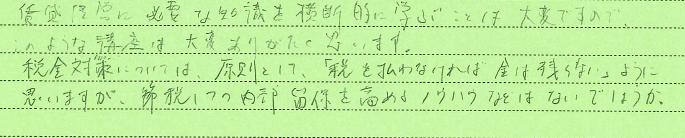 賃貸経営に必要な知識を横断的に学ぶことは大変ですので、
このような講座は大変ありがたく思います。
税金対策については、原則として、「税を払わなければ金は残らない」ように
思いますが、節税しつつ内部留保を高めるノウハウなどはないでしょうか。